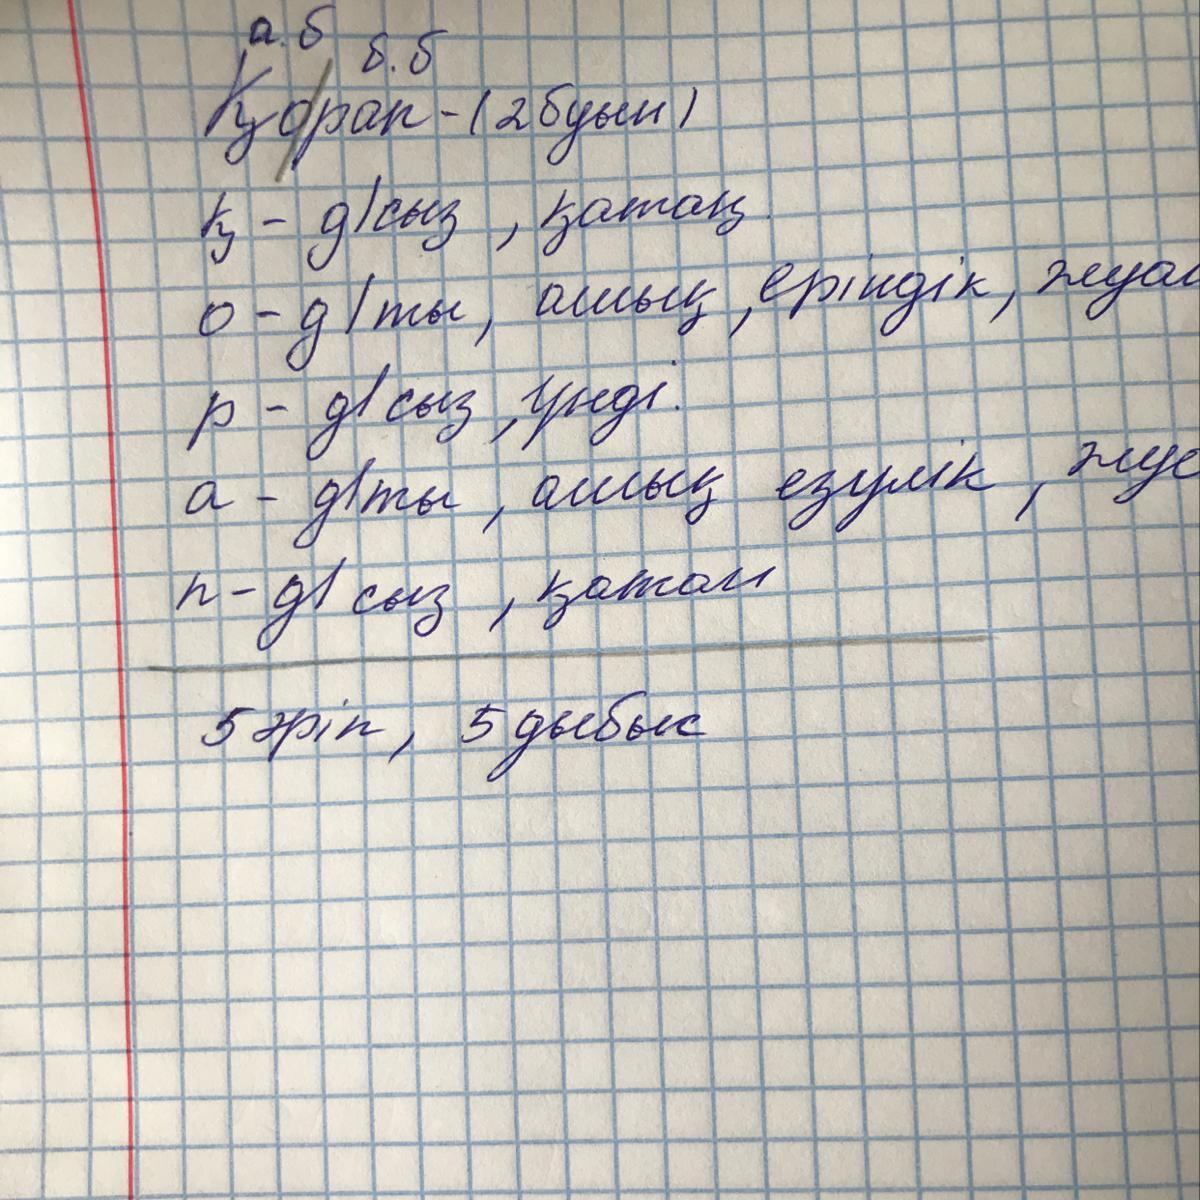 а.б б.б
Қо/рап - (2 буын)
қ - д/сыз, қатаң.
о - д/ты, ашық, еріндік, жуан
р - д/сыз, үнді.
а - д/ты, ашық езулік,
п - д/сыз, қатаң
5 әріп, 5 дыбыс